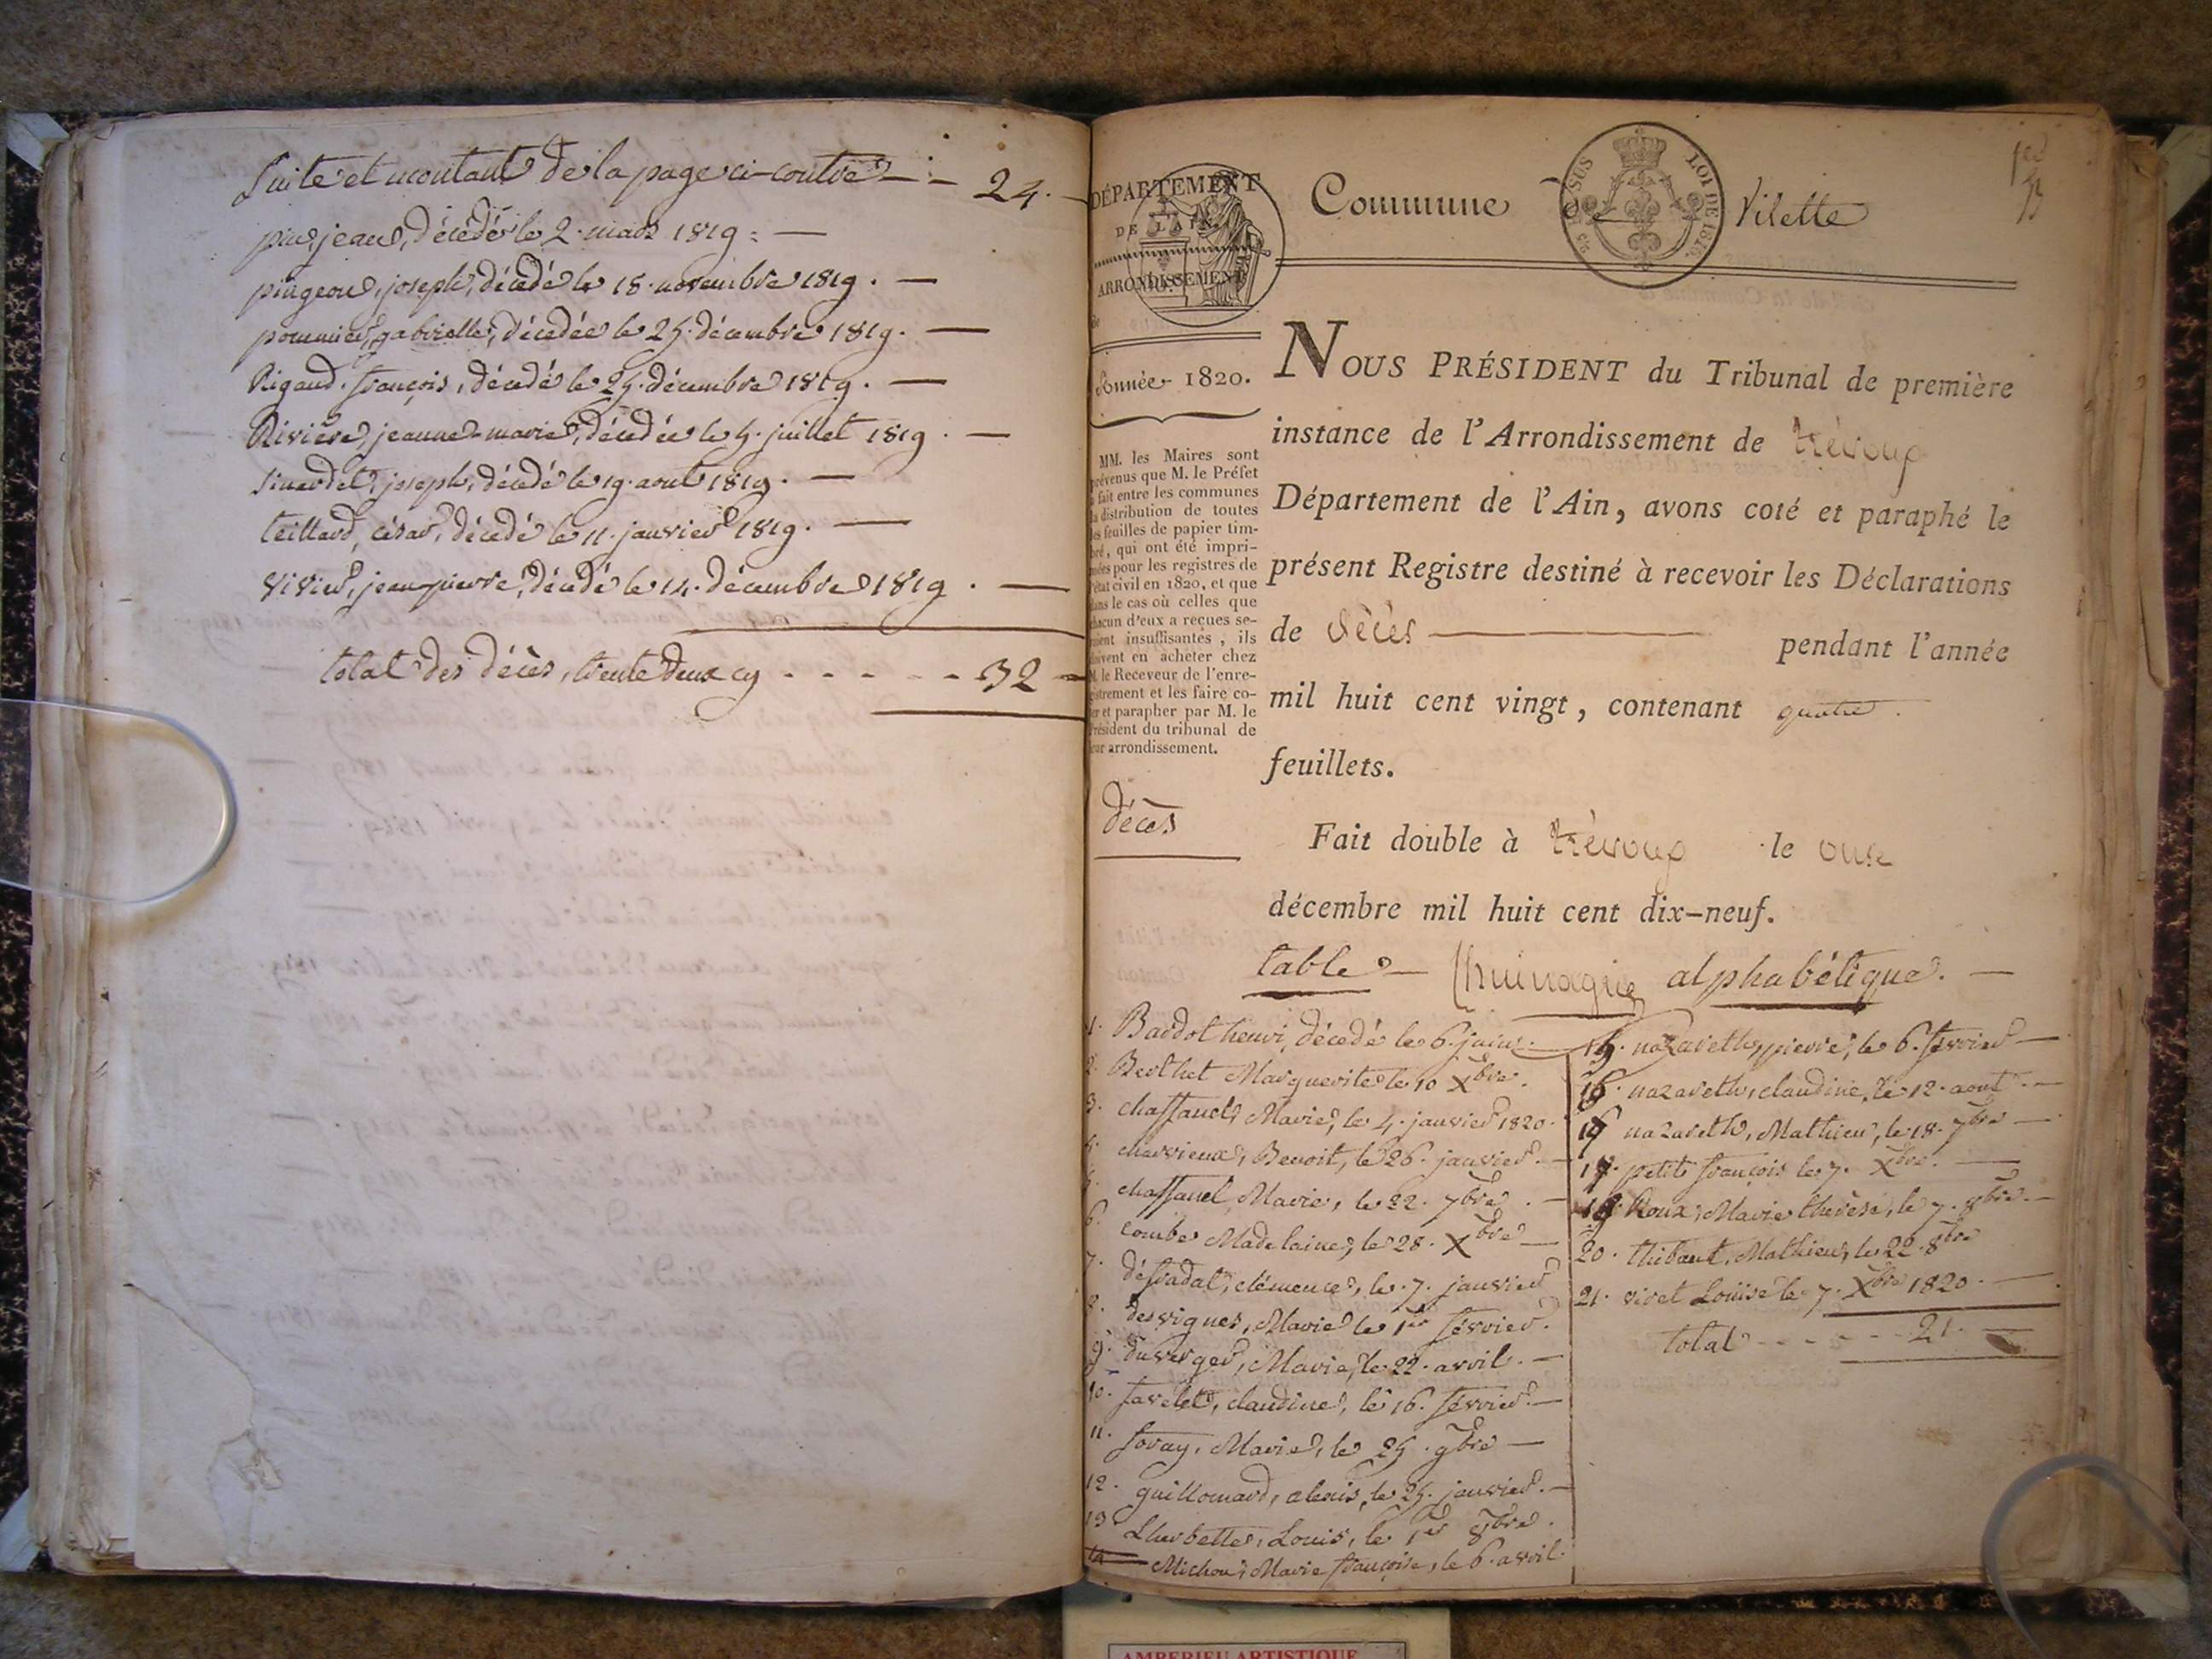 Suite et montant de la page ci-contre — 24.
pin, jean, décédé le 2. mars 1819. —
pingeon, joseph, décédé le 18. novembre 1819. —
pommier, gabrielle, décédée le 25. décembre 1819. —
Rigaud. françois, décédé le 25. décembre 1819. —
Rivière, jeanne-marie, décédée le 5. juillet 1819. —
Sinardet, joseph, décédé le 19. aout 1819. —
teillard, césar, décédé le 11. janvier 1819. —
Vivier, jean pierre, décédé le 14. décembre 1819. —
total des décès, trente deux cy - - - - - 32
DÉPARTEMENT
DE L'AIN.
ARRONDISSEMENT
de
Année 1820.
MM. les Maires sont
prévenus que M. le Préfet
a fait entre les communes
la distribution de toutes
les feuilles de papier tim-
bré, qui ont été impri-
mées pour les registres de
l'état civil en 1820, et que
dans le cas où celles que
chacun d'eux a reçues se-
roient insuffisantes, ils
doivent en acheter chez
M. le Receveur de l'enre-
gistrement et les faire co-
ter et parapher par M. le
Président du tribunal de
leur arrondissement.
décès
Commune de Vilette
LOI DE 1816.
NOUS PRÉSIDENT du Tribunal de première
instance de l'Arrondissement de trévoux
Département de l'Ain, avons coté et paraphé le
présent Registre destiné à recevoir les Déclarations
de décès — pendant l'année
mil huit cent vingt, contenant quatre
feuillets.
Fait double à trévoux le onze
décembre mil huit cent dix-neuf.
table — alphabétique. —
1. Bardot henri, décédé le 6. juin. —
2. Berthet Marguerite le 10 Xbre.
3. chaffanel, Marie, le 4. janvier 1820.
4. charvieux, Benoit, le 26. janvier. —
5. chaffanel, Marie, le 22. 7bre. —
6. combe Madelaine, le 28. Xbre —
7. clémence, le 7. janvier
8. desvignes, Marie le 1er février.
9. duverger, Marie, le 22. avril. —
10. favelet, claudine, le 16. février. —
11. foray, Marie, le 25. 9bre —
12. guillomard, alexis, le 25. janvier. —
13. Lherbette, Louis, le 1er 8bre.
14 Michon, Marie françoise, le 6. avril.
15. nazareth, pierre, le 6. février —
16. nazareth, claudine, le 12. aout. —
17 nazareth, Mathieu, le 18. 7bre —
18. petit françois le 7. Xbre. —
19. Roux, Marie therèse, le 7. 8bre. —
20. thibaut, Mathieu, le 22. 8bre
21. viret Louise le 7. Xbre 1820. —
total - - - - - 21. —
AMBERIEU ARTISTIQUE